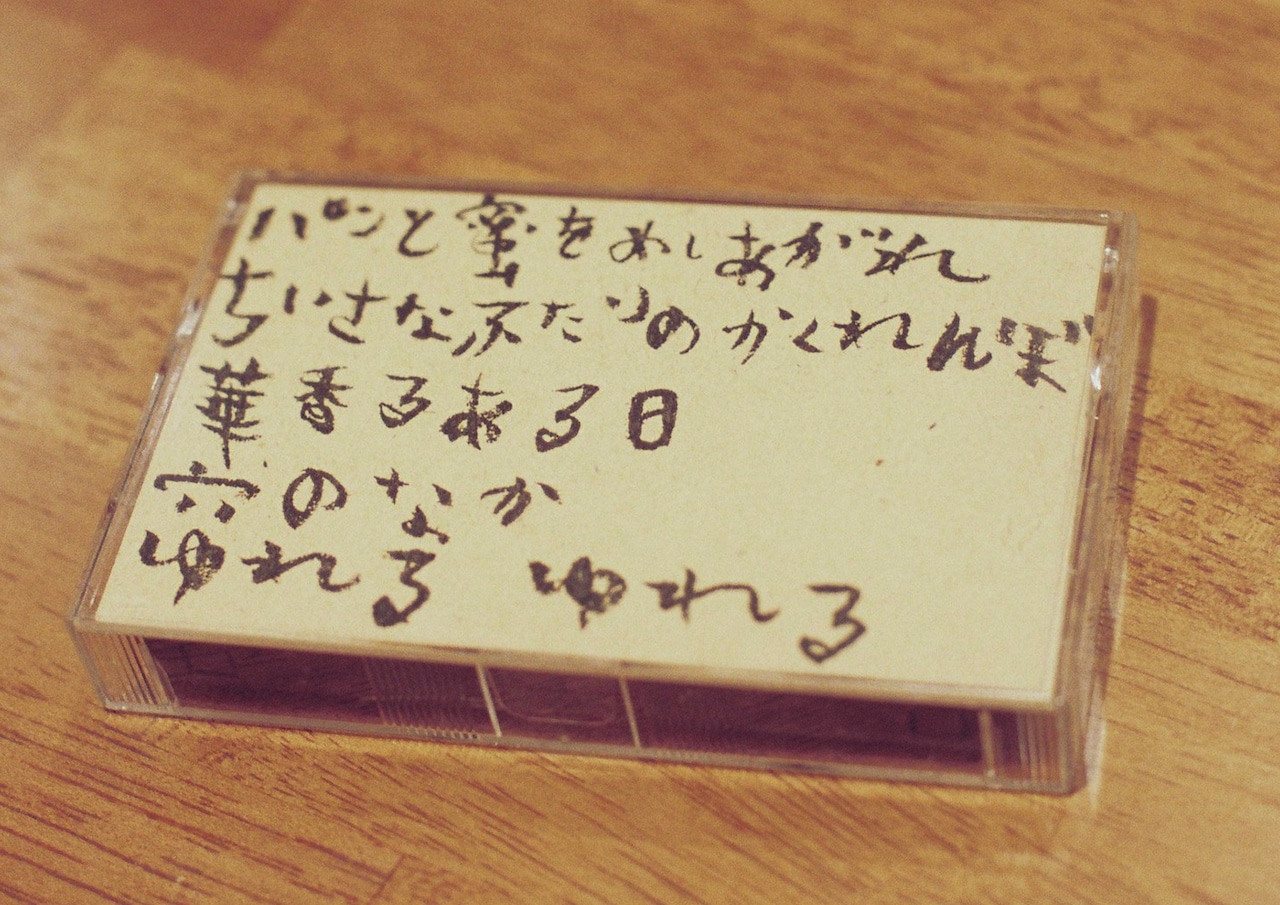 パンと蜜をめしあがれ
ちいさな灰たりのかくれんぼ
華香るある日
穴のなか
ゆれる ゆれる